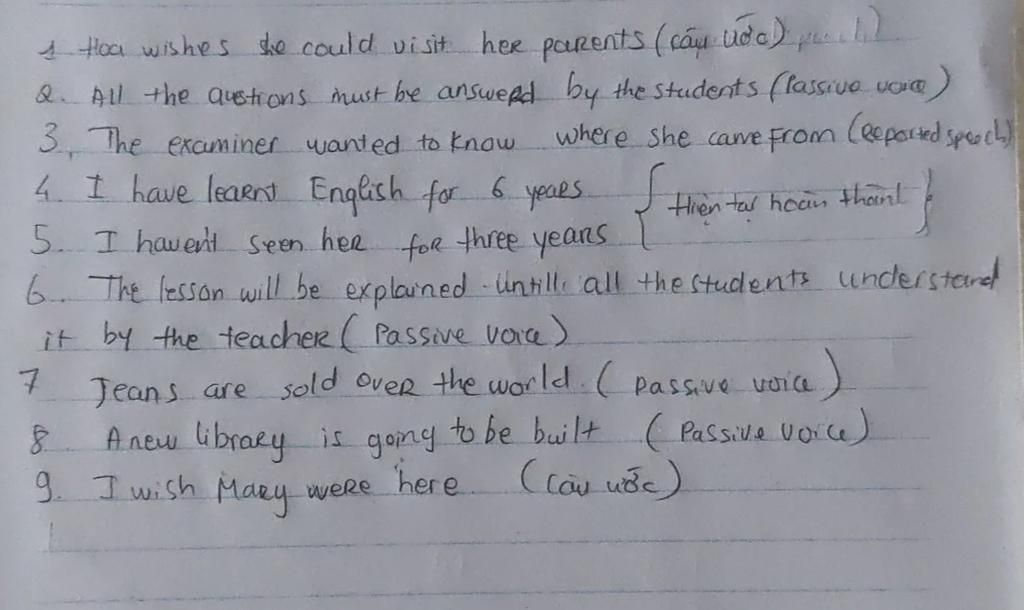 1 Hoa wishes she could visit her parents (câu ước)
2. All the questions must be answerd by the students (Passive voice)
3, The examiner wanted to know where she came from (Reported speech)
4. I have learnt English for 6 years { Hiện tại hoàn thành }
5. I haven't seen her for three years
6. The lesson will be explained untill all the students understand
it by the teacher (Passive voice)
7 Jeans are sold over the world. (passive voice)
8. A new library is going to be built (Passive voice)
9. I wish Mary were here (Câu ước)